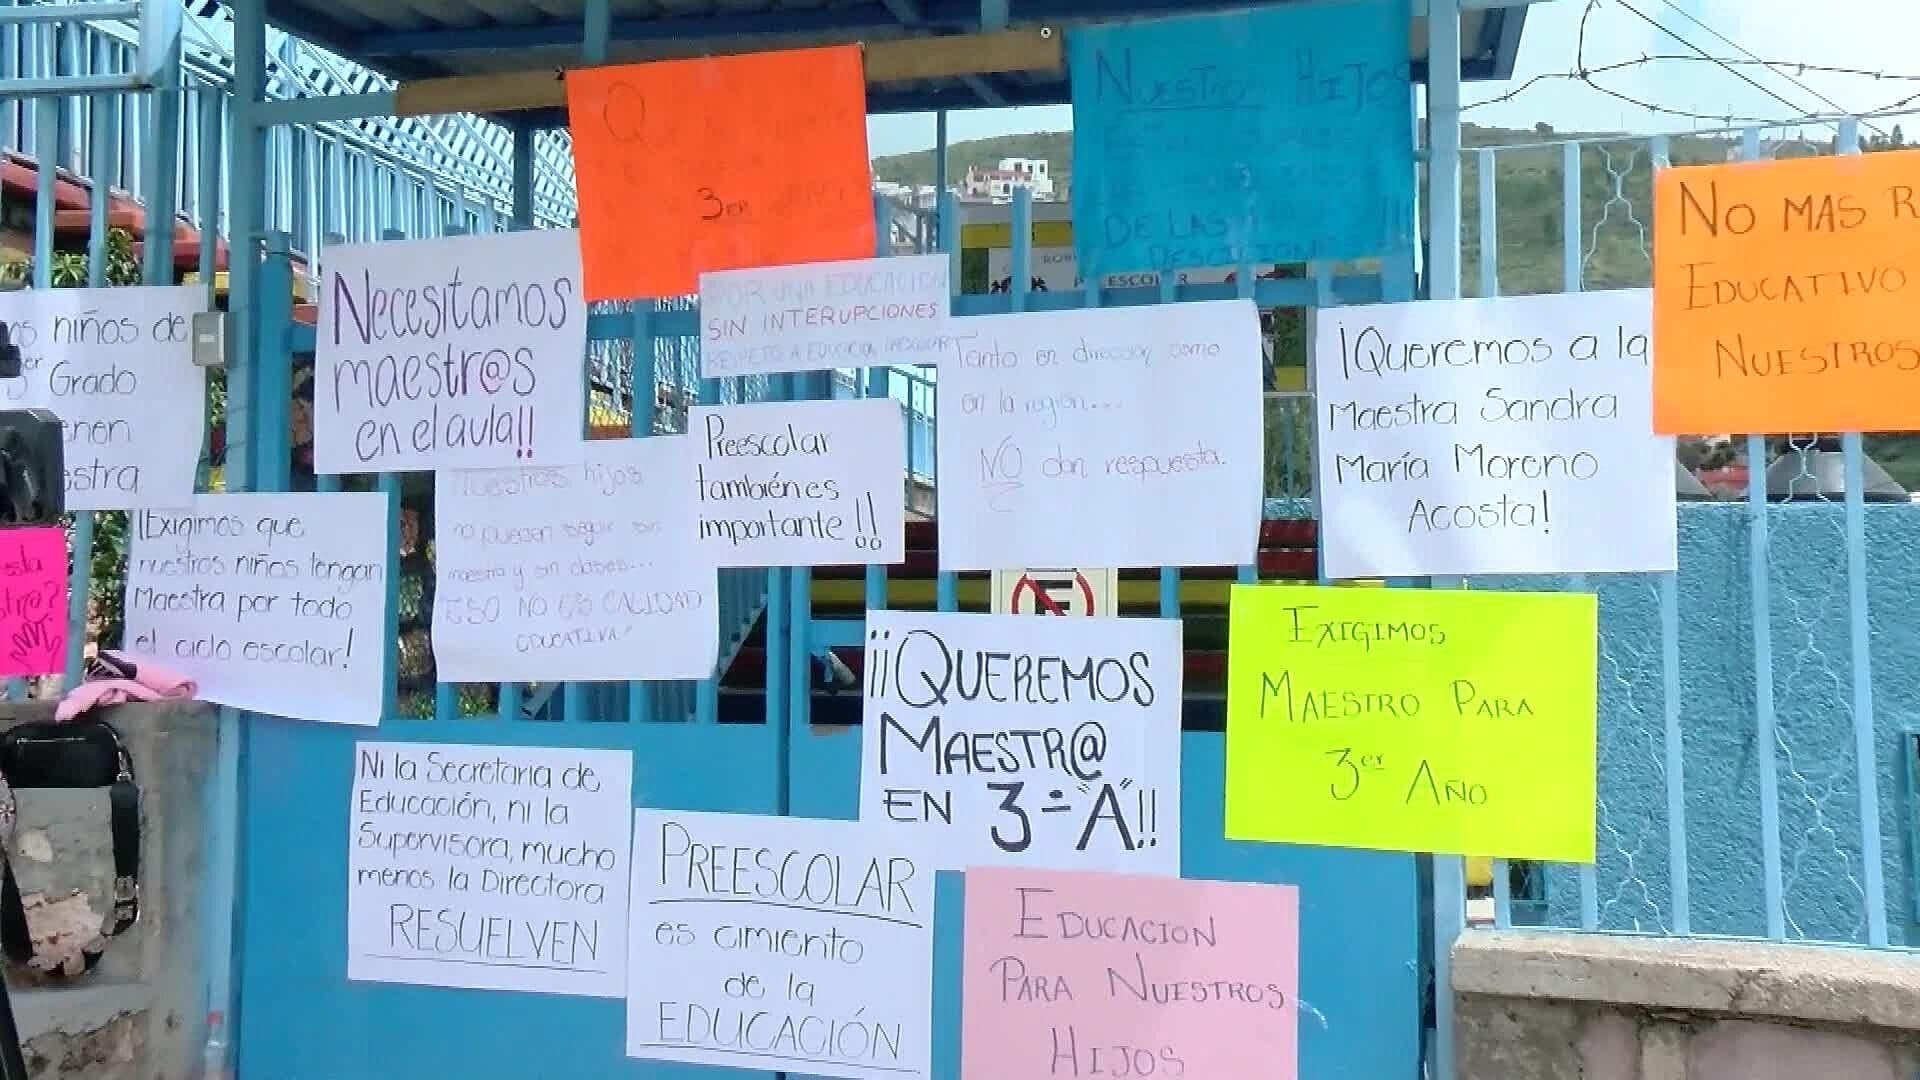 Q
3er
Nuestros Hijos
de las
No mas r
Educativo
Nuestros
niños de
er Grado
enen
stra
Necesitamos
maestr@s
en el aula!!
Por una educación
sin interupciones
respeto a
Tanto en direccion como
en la region...
NO dan respuesta.
¡Queremos a la
Maestra Sandra
María Moreno
Acosta!
Preescolar
también es
importante!!
¡Exigimos que
nuestros niños tengan
Maestra por todo
el ciclo escolar!
Nuestros hijos
no pueden seguir sin
maestra y sin clases...
ESO NO ES CALIDAD
EDUCATIVA!
¡¡Queremos
Maestr@
en 3-"A"!!
Exigimos
Maestro Para
3er Año
Ni la Secretaria de
Educación, ni la
Supervisora, mucho
menos la Directora
RESUELVEN
PREESCOLAR
es cimiento
de la
EDUCACIÓN
Educacion
Para Nuestros
Hijos